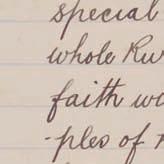 special
whole
faith
-ples of